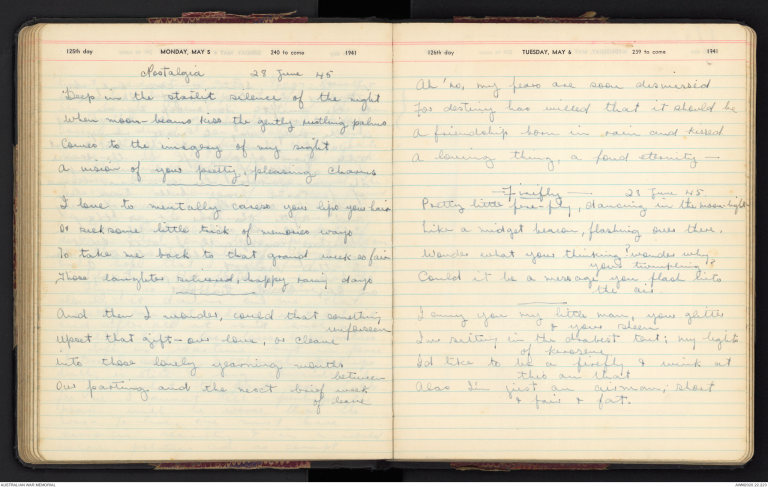 125th day MONDAY, MAY 5 240 to come 1941
Nostalgia 28 June 45
Deep in the starlit silence of the night
When moon-beams kiss the gently rustling palms
Comes to the imagery of my sight
A vision of your pretty, pleasing charms
I love to mentally caress your lips your hair
Or seek some little trick of memories ways
To take me back to that grand week so fair
Those laughter relieved, happy rainy days
And then I wonder, could that something
unforseen
Upset that gift - our love, or cleave
into those lonely yearning months
between
Our parting and the next brief week
of leave
126th day TUESDAY, MAY 6 239 to come 1941
Ah 'no, my fears are soon dismissed
For destiny has willed that it should be
A friendship born in rain and kissed
A loving thing, a fond eternity —
— Firefly — 28 June 45
Pretty little fire-fly, dancing in the moon-light
Like a midget beacon, flashing over there.
Wonder what your thinking? wonder why
your twinkling?
Could it be a message you flash into
the air
I envy you my little man, your glitter
& your sheen
I'm sitting in the drabest tent; my light's
of kerosene
I'd like to be a firefly & wink at
this an that
Alas I'm just an airman; short
& fair & fat.
AUSTRALIAN WAR MEMORIAL